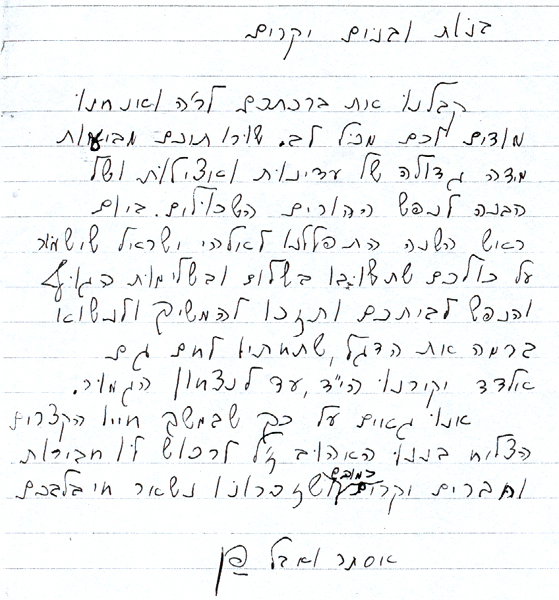 בנות ובנים יקרים
קבלנו את ברכתכם לר"ה ואנחנו
מודים לכם מכל לב. שורותיכם מביעות
מידה גדולה של עדינות ואצילות ושל
הבנה לנפש ההורים השכולים. ביום
ראש השנה התפללנו לאלהי ישראל שישמור
על כולכם שתשובו בשלום ובשלימות הגוף
והנפש לביתכם ותזכו להמשיך ולנשוא
ברמה את הדגל, שתחתיו לחם גם
אלדד יקירנו הי"ד, עד לנצחון הגמור.
אנו גאים על כך שבמשך חייו הקצרים
הצליח בננו האהוב ז"ל לרכוש לו חבירות
וחברים יקרים כמוכם שזכרונו נשאר חי בלבכם
אסתר ואבל פן